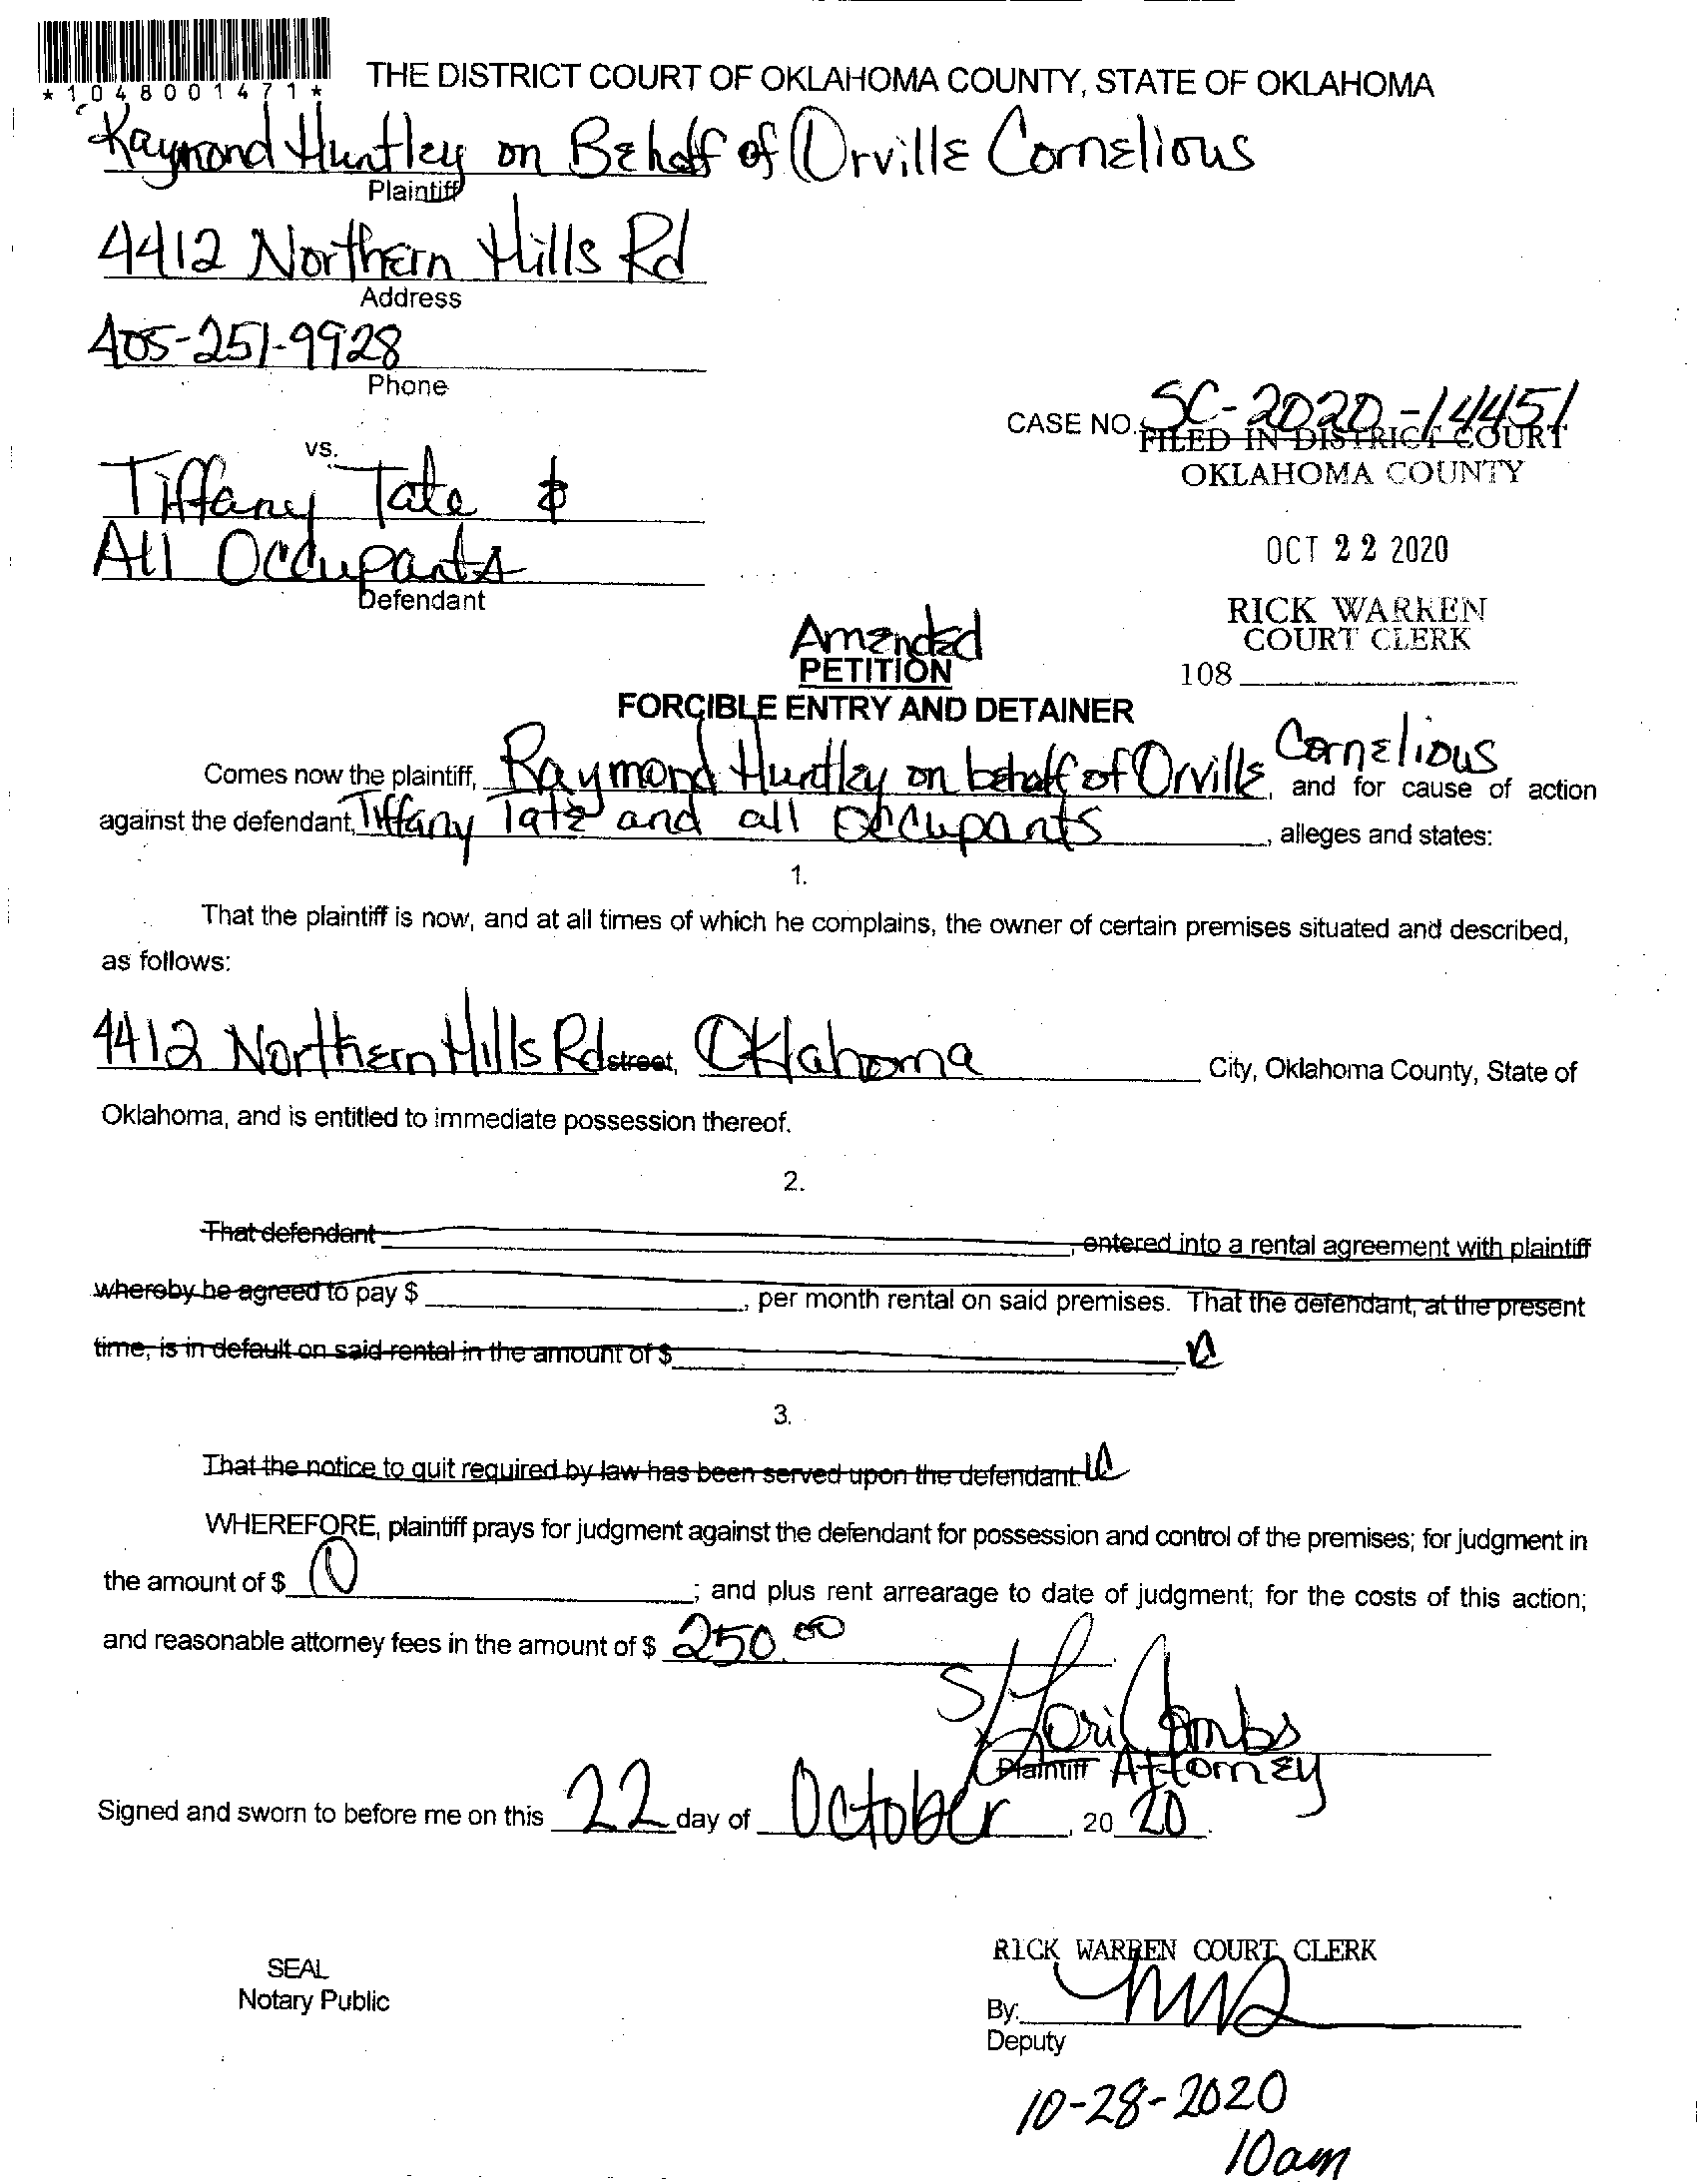 *1048001471*
THE DISTRICT COURT OF OKLAHOMA COUNTY, STATE OF OKLAHOMA
Raymond Huntley on Behalf of Orville Cornelious
Plaintiff
4412 Northern Hills Rd
Address
405-251-9928
Phone
CASE NO. SC-2020-14451
FILED IN DISTRICT COURT
OKLAHOMA COUNTY
vs.
Tiffany Tate &
All Occupants
Defendant
OCT 22 2020
RICK WARREN
COURT CLERK
108
Amended
PETITION
FORCIBLE ENTRY AND DETAINER
Comes now the plaintiff, Raymond Huntley on behalf of Orville Cornelious, and for cause of action
against the defendant, Tiffany Tate and all occupants, alleges and states:
1.
That the plaintiff is now, and at all times of which he complains, the owner of certain premises situated and described,
as follows:
4412 Northern Hills Rd street, Oklahoma City, Oklahoma County, State of
Oklahoma, and is entitled to immediate possession thereof.
2.
That defendant , entered into a rental agreement with plaintiff
whereby he agreed to pay $ , per month rental on said premises. That the defendant, at the present
time, is in default on said rental in the amount of $ .
3.
That the notice to quit required by law has been served upon the defendant.
WHEREFORE, plaintiff prays for judgment against the defendant for possession and control of the premises; for judgment in
the amount of $ 0 ; and plus rent arrearage to date of judgment; for the costs of this action;
and reasonable attorney fees in the amount of $ 250.00 .
S/Lori Combs
Plaintiff Attorney
Signed and sworn to before me on this 22 day of October, 20 20.
SEAL
Notary Public
RICK WARREN COURT CLERK
By:
Deputy
10-28-2020
10am